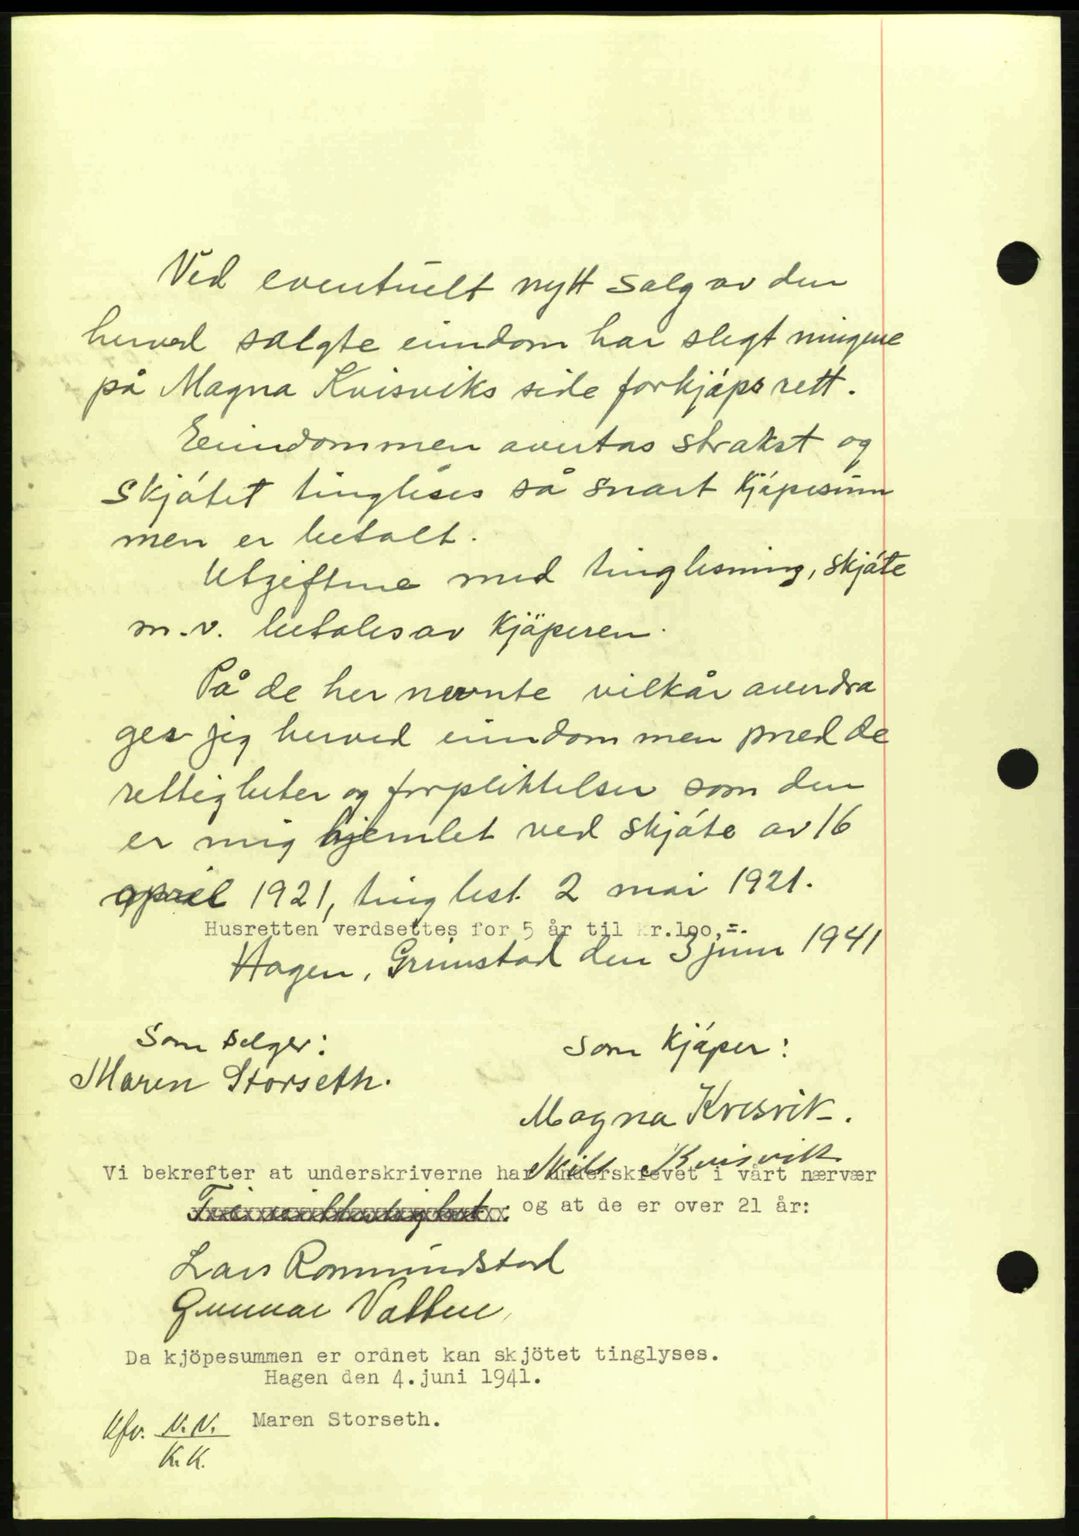 Ved eventuelt nytt salg av den
herved salgte eiendom har slegtningene
på Magna Kvisviks side forkjøpsrett.
Eeiendommen avertas strakst og
Skjøtet tingleses så snart Kjøpesum
men er betalt.
Utgiftene med tinglesning, skjøte
m.v. betales av Kjøperen.
På de her nevnte vilkår averdra
ges jeg herved eiendommen med de
rettigheter og forpliktelser som den
er mig hjemlet ved skjøte av 16
april 1921, tinglest 2 mai 1921.
Husretten verdsettes for 5 år til kr.100,=.
Hagen, Grimstad den 3 juni 1941
Som selger:
Maren Storseth.
Som Kjøper:
Magna Kvisvik.
Kvisvik
Vi bekrefter at underskriverne har underskrevet i vårt nærvær
Til vitterlighet: og at de er over 21 år:
Lars Romundstad
Gunnar Vatten
Da kjöpesummen er ordnet kan skjötet tinglyses.
Hagen den 4.juni 1941.
Maren Storseth.
Kfr. N.N.
K.K.